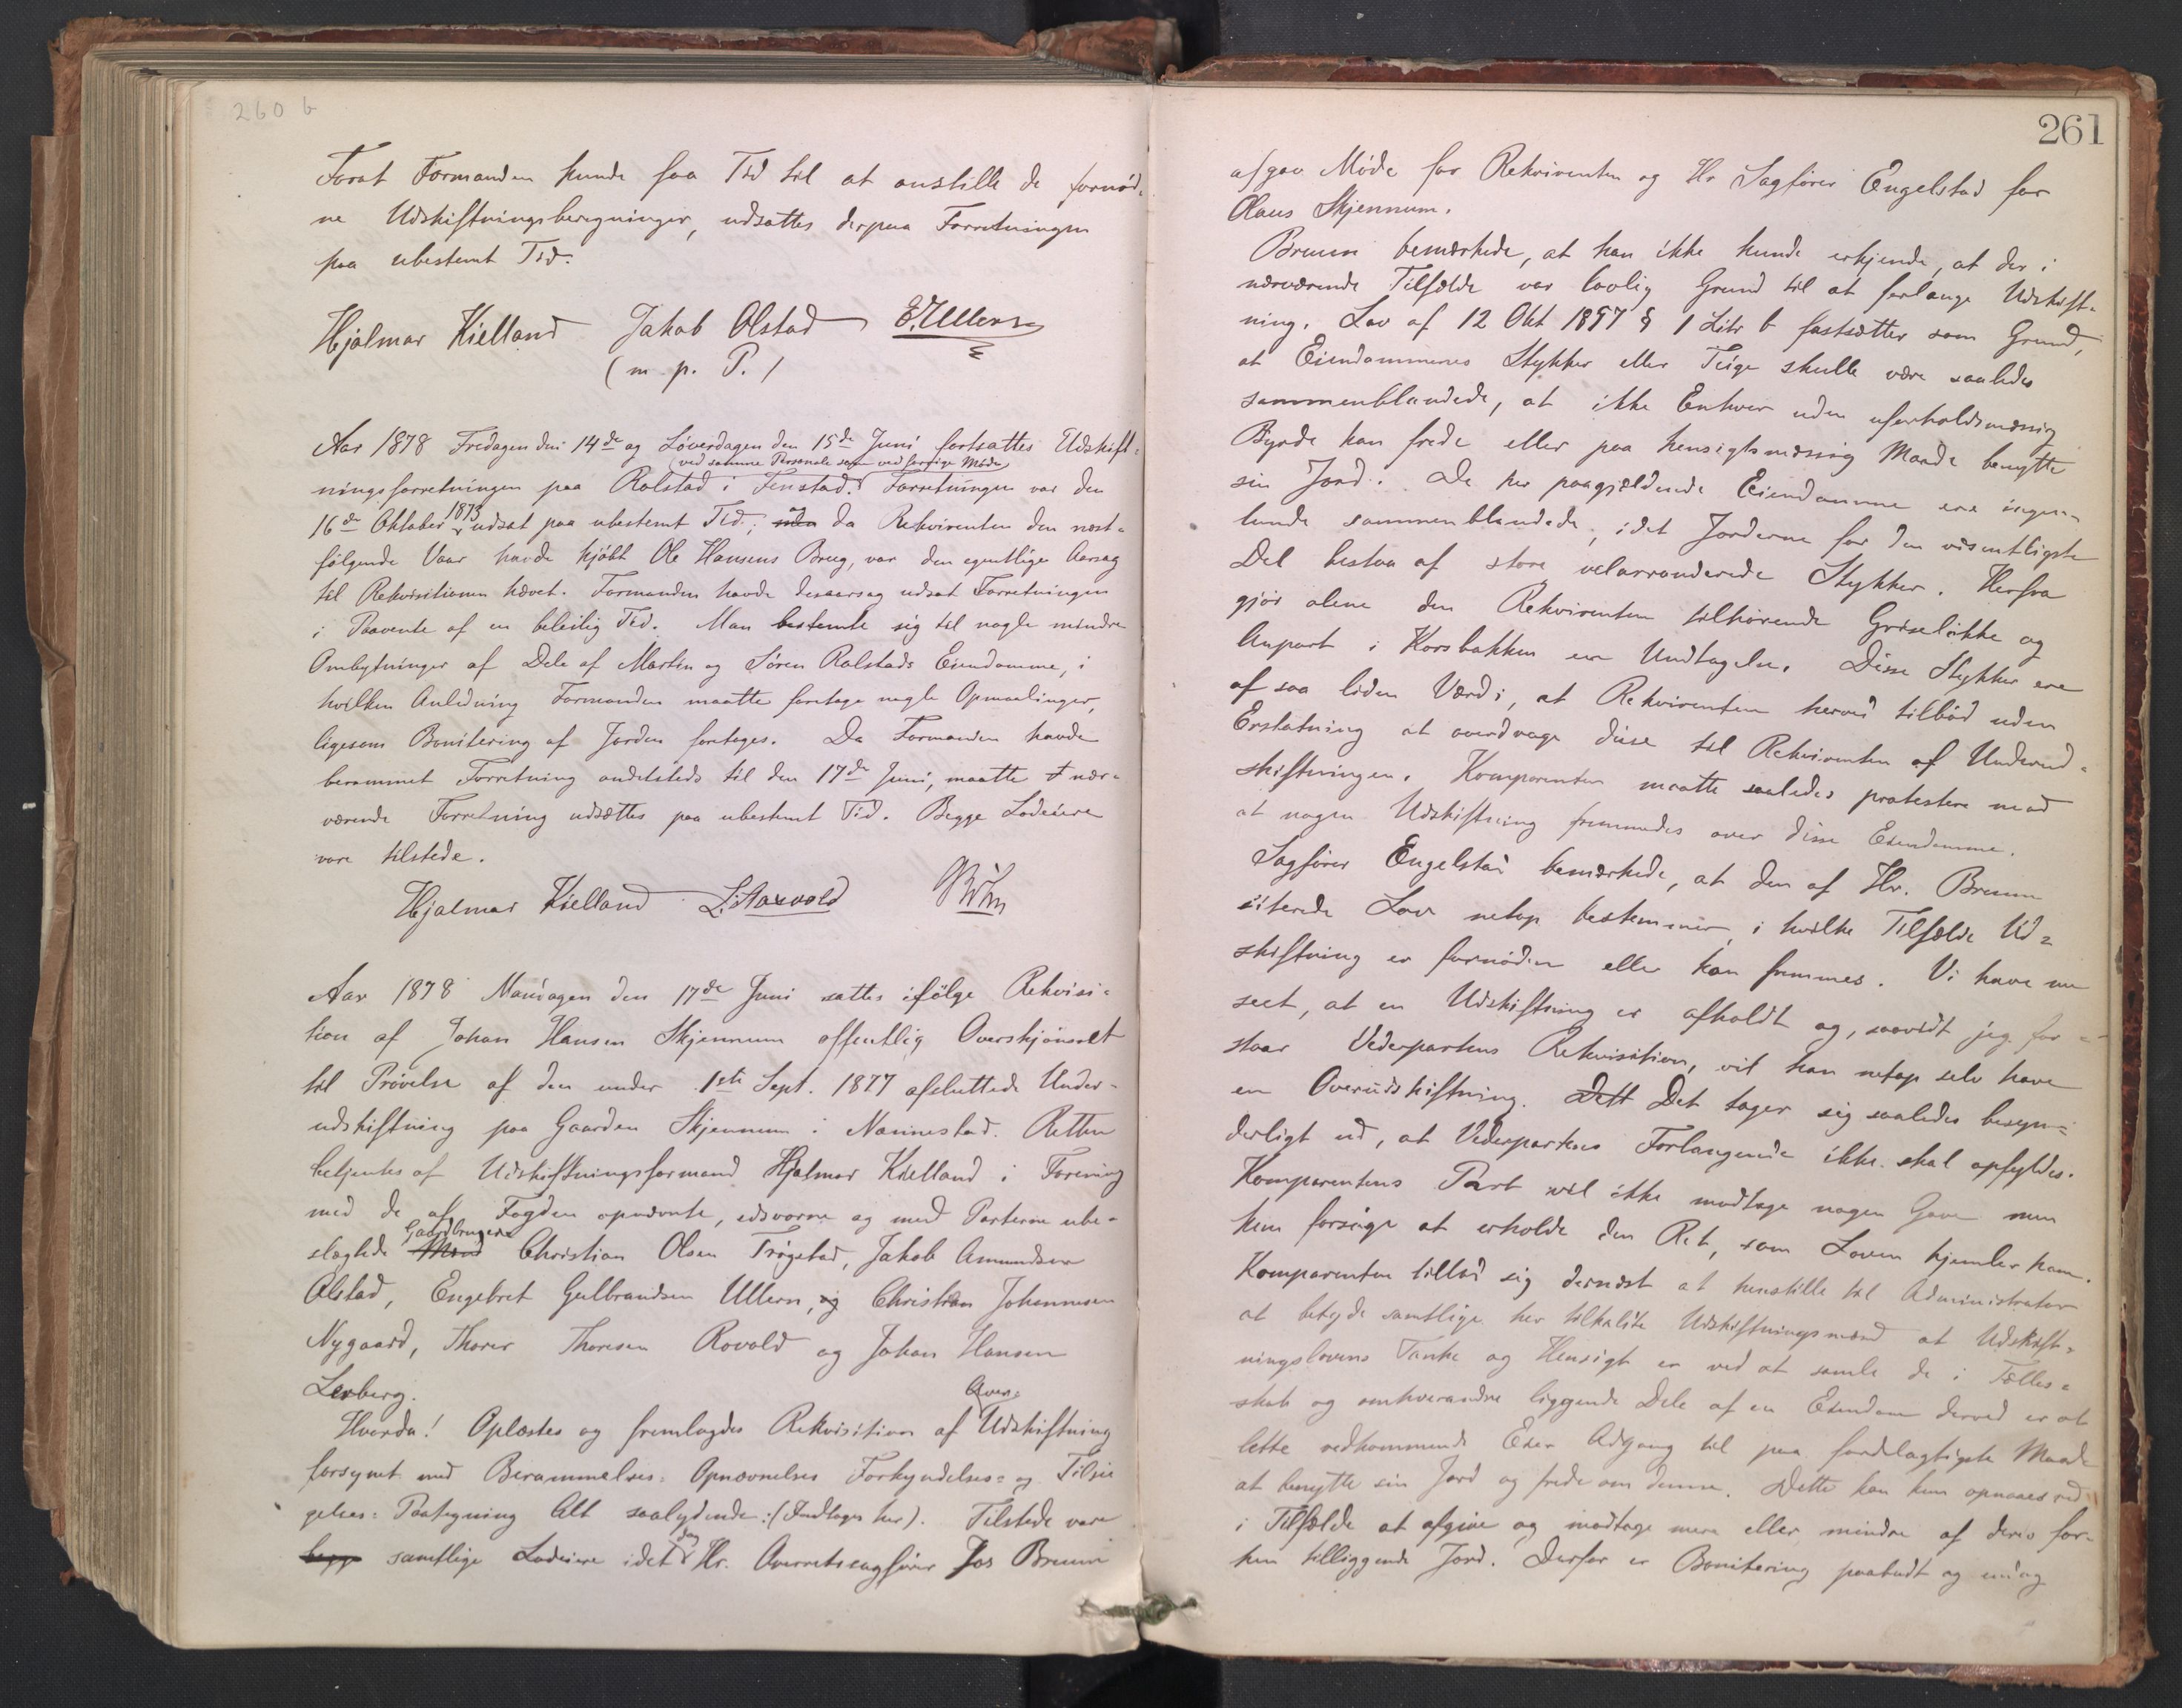 260 b
Forat Formanden kunde faa Tid til at anstille de fornød-
ne Udskiftningsberegninger, udsattes derpaa Forretningen
paa ubestemt Tid.
Hjalmar Kielland Jakob Olstad E. Ullern
(m. p. P.)
Aar 1878 Fredagen den 14de og Løverdagen den 15de Juni fortsattes Udskift-
(ved samme Personale som ved forrige Møde)
ningsforretningen paa Rolstad i Fenstad. Forretningen var den
16de Oktober 1873 udsat paa ubestemt Tid; da Rekvirenten den næst-
følgende Vaar havde kjøbt Ole Hansens Brug, var den egentlige Aarsag
til Rekvisitionen hævet. Formanden havde desaarsag udsat Forretningen
i Paavente af en beleilig Tid. Man bestemte sig til nogle mindre
Ombytninger af Dele af Martin og Søren Rolstads Eiendomme, i
hvilken Anledning Formanden maatte foretage nogle Opmaalinger,
ligesom Bonitering af Jorden foretoges. Da Formanden havde
berammet Forretning andetsteds til den 17de Juni, maatte nær-
værende Forretning udsættes paa ubestemt Tid. Begge Lodeiere
vare tilstede.
Hjalmar Kielland L. Aarvold
Aar 1878 Mandagen den 17de Juni sattes ifølge Rekvisi-
tion af Johan Hansen Skjennum offentlig Overskjønsret
til Prøvelse af den under 1ste Sept. 1877 afsluttede Under-
udskiftning paa Gaarden Skjennum i Nannestad. Retten
betjentes af Udskiftningsformand Hjalmar Kielland i Forening
med de af Fogden opnævnte, edsvorne og med Parterne ube-
Gaardbrugere
slægtede Mænd Christian Olsen Trøgstad, Jakob Amundsen
Olstad, Engebret Gulbrandsen Ullern, og Christian Johannesen
Nygaard, Thorer Thoresen Rovold og Johan Hansen
Lerberg.
Over-
Hvorda! Oplæstes og fremlagdes Rekvisition af Udskiftning
forsynet med Berammelses- Opnævnelses Forkyndelses- og Tilsie
gelses- Paategning Alt saalydende: (Indtages her). Tilstede vare
begge samtlige Lodeiere idet Hr. Overretssagfører Jos Bruun
261
afgav Møde for Rekvirenten og Hr Sagfører Engelstad for
Olaus Skjennum.
Bruun bemærkede, at han ikke kunde erkjende, at der i
nærværende Tilfælde var lovlig Grund til at forlange Udskift-
ning. Lov af 12 Okt 1857 § 1 Litr b fastsætter som Grund,
at Eiendommenes Stykker eller Teige skulle være saaledes
sammenblandede, at ikke Enhver uden uforholdsmæssig
Byrde kan frede eller paa hensigtsmæssig Maade benytte
sin Jord. De her paagjældende Eiendomme ere ingen-
lunde sammenblandede, idet Jorderne for den væsentligste
Del bestaa af store velarronderede Stykker. Herfra
gjør alene den Rekvirenten tilhørende Griseløkke og
Anpart i Korsbakken en Undtagelse. Disse Stykker ere
af saa liden Værdi, at Rekvirenten herved tilbød uden
Erstatning at overdrage disse til Rekvirenten af Underud-
skiftningen. Komparenten maatte saaledes protestere mod
at nogen Udskiftning fremmedes over disse Eiendomme.
Sagfører Engelstad bemærkede, at den af Hr. Bruun
siterede Lov netop bestemmer, i hvilke Tilfælde Ud-
skiftning er fornøden eller kan fremmes. Vi have nu
seet, at en Udskiftning er afholdt og, saavidt jeg for-
staar Vederpartens Rekvisition, vil han netop selv have
en Overudskiftning. Dett Det tager sig saaledes besyn-
derligt ud, at Vederpartens Forlangende ikke skal opfyldes.
Komparentens Part vil ikke modtage nogen Gave men
kun forsøge at erholde den Ret, som Loven hjemler ham.
Komparenten tillod sig dernæst at henstille til Administrator
at betyde samtlige her tilkaldte Udskiftningsmænd at Udskift-
ningslovens Tanke og Hensigt er ved at samle de i Fælles-
skab og omhverandre liggende Dele af en Eiendom derved er at
lette vedkommende Eier Adgang til paa fordelagtigste Maade
at benytte sin Jord og frede om denne. Dette kan kun opnaaes ved
i Tilfælde at afgive og modtage mere eller mindre af deres for-
hen tilliggende Jord. Derfor er Bonitering paabudt og enhver